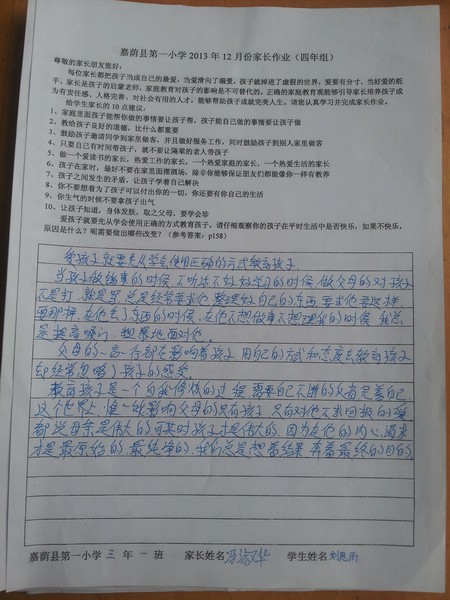 嘉荫县第一小学 2013 年 12 月份家长作业（四年组）
尊敬的家长朋友您好：
每位家长都把孩子当成自己的最爱，当爱滑向了溺爱，孩子就掉进了虚假的世界，爱要有分寸，当好爱的舵
手。家长是孩子的启蒙老师，家庭教育对孩子的影响是不可替代的。正确的家庭教育观能够引导家长培养孩子成
为有责任感、人格完善、对社会有用的人才，能够帮助孩子成就完美人生。请您认真学习并完成家长作业。
给学生家长的 10 点建议：
1、家庭里面孩子能帮你做的事情要让孩子帮，孩子能自己做的事情要让孩子做
2、教给孩子良好的道德，比什么都重要
3、鼓励孩子邀请同学到家里做客，并且做好服务工作，同时鼓励孩子到别人家里做客
4、只要自己有时间带孩子，就不要让隔辈的老人带孩子
5、做一个爱读书的家长，热爱工作的家长，一个热爱家庭的家长，一个热爱生活的家长
6、孩子在家时，最好不要在家里面摆牌场，除非你能够保证朋友们都能像你一样有教养
7、孩子之间发生的矛盾，让孩子学着自己解决
8、你不要想着为了孩子可以付出你的一切，你还要有你自己的生活
9、你生气的时候不要拿孩子出气
10、让孩子知道，身体发肤，取之父母，要学会珍
爱孩子就要先从学会使用正确的方式教育孩子，请仔细观察你的孩子在平时生活中是否快乐，如果不快乐，
原因是什么？呢需要做出哪些改变？（参考答案：p158）
爱孩子就要先从学会使用正确的方式教育孩子.
当孩子做错事的时候 不听话不好好学习的时候 做父母的对孩子
不是打 就是骂 总是经常要求他 整理好自己的东西 要求他要这样
要那样 在他丢了东西的时候 在他不想做事不想理我的时候 我总
是提高嗓门 粗暴地面对他.
父母的一言一行都在影响着孩子 用自己的方式和态度去教育孩子
却经常忽略了孩子的感受.
教育孩子是一个自我修炼的过程 需要自己不断的完善自己
这个世界上 唯一能影响父母的只有孩子 只有对他不求回报的爱
都说母亲是伟大的 可其时孩子才是伟大的 因为在他的内心 追求
才是最原始的 最纯净的 我们总是想着结果 奔着最终的目的.
嘉荫县第一小学 三 年 一 班 家长姓名 冯淑华 学生姓名